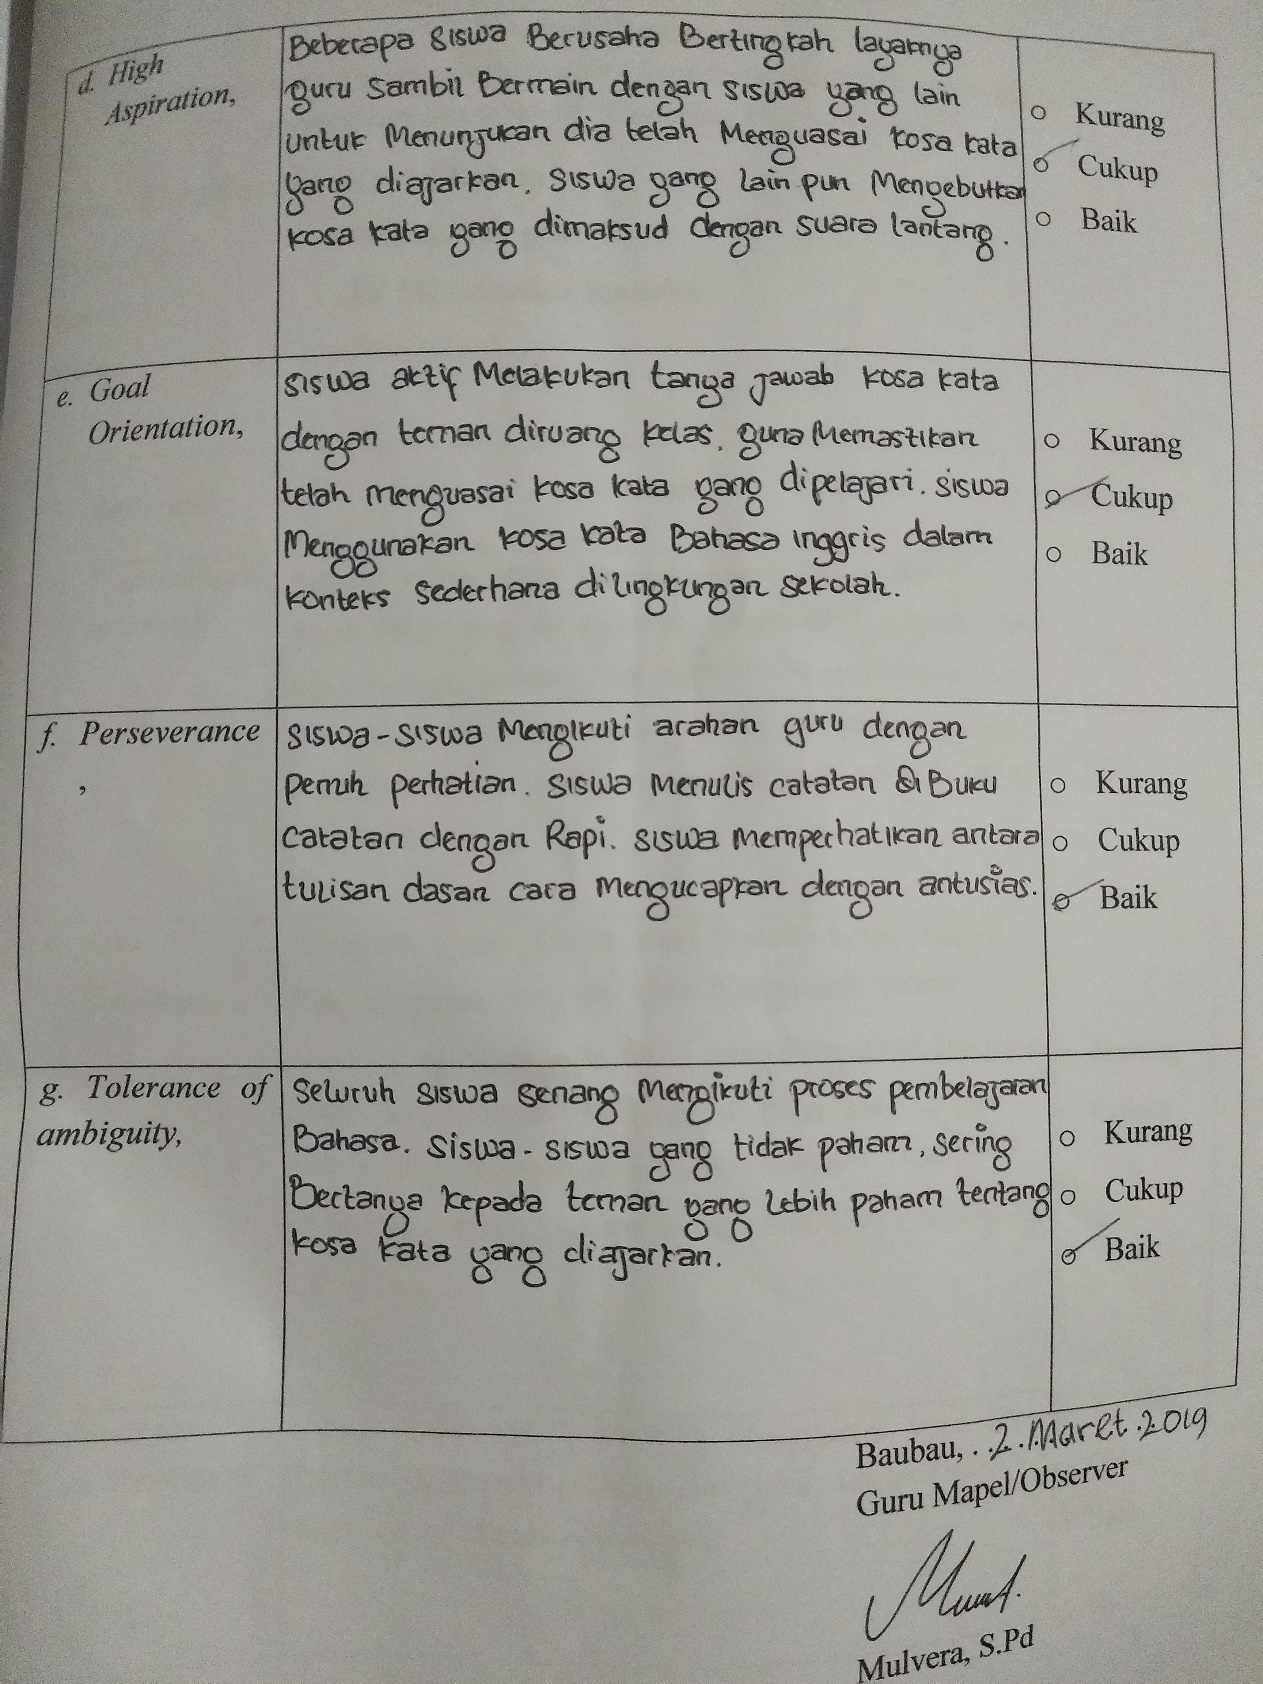 d. High
Aspiration,
Beberapa siswa Berusaha Bertingkah layaknya
guru sambil Bermain dengan siswa yang lain
untuk Menunjukan dia telah Menguasai kosa kata
yang diajarkan. Siswa yang lain pun Mengebutkan
kosa kata yang dimaksud dengan suara lantang.
Kurang
Cukup
Baik
e. Goal
Orientation,
siswa aktif Melakukan tanya jawab kosa kata
dengan teman diruang kelas, guna Memastikan
telah menguasai kosa kata yang dipelajari. siswa
Menggunakan kosa kata Bahasa inggris dalam
konteks sederhana dilingkungan sekolah.
Kurang
Cukup
Baik
f. Perseverance
,
siswa-siswa Mengikuti arahan guru dengan
penuh perhatian. siswa Menulis catatan di Buku
catatan dengan Rapi. siswa memperhatikan antara
tulisan dasan cara Mengucapkan dengan antusias.
Kurang
Cukup
Baik
g. Tolerance of
ambiguity,
Seluruh siswa senang Mengikuti proses pembelajaran
Bahasa. siswa-siswa yang tidak paham, sering
Bertanya kepada teman yang lebih paham tentang
kosa kata yang diajarkan.
Kurang
Cukup
Baik
Baubau, . .2.Maret.2019
Guru Mapel/Observer
Mulvera, S.Pd